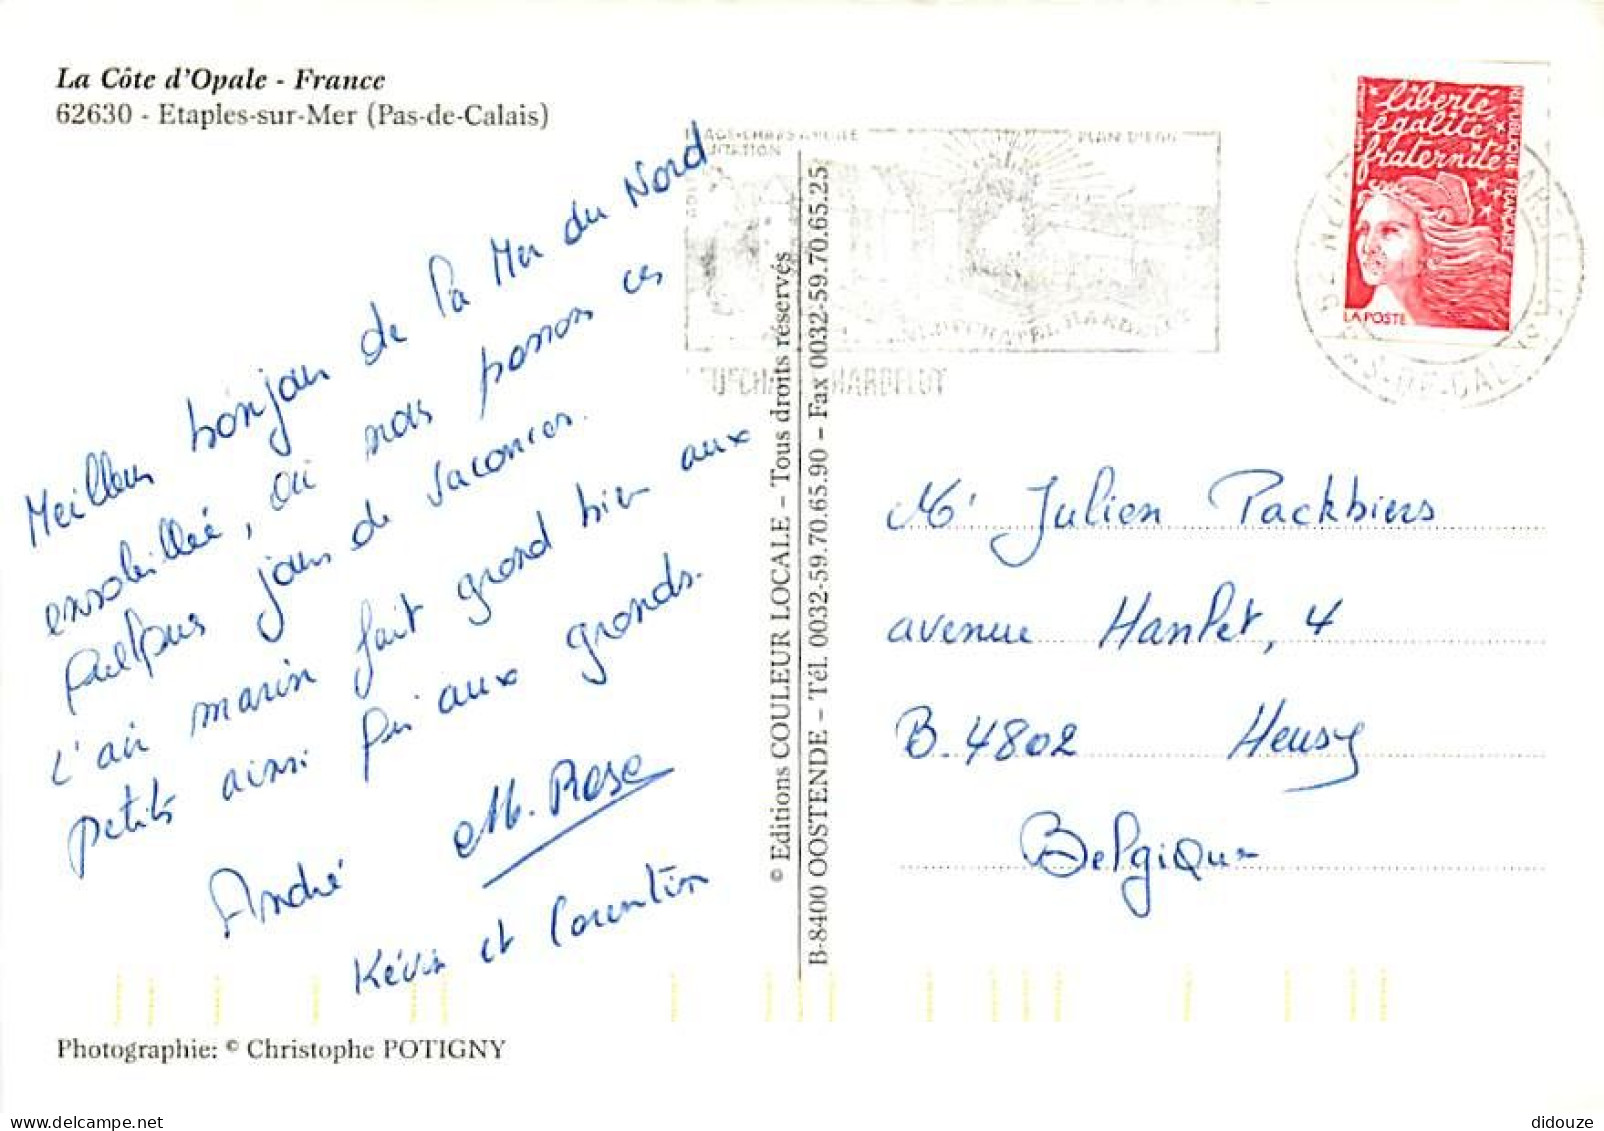 La Côte d'Opale - France
62630 - Etaples-sur-Mer (Pas-de-Calais)
Meilleur bonjour de la Mer du Nord
ensoleillée, où nous passons ces
quelques jours de vacances.
L'air marin fait grand bien aux
petits ainsi qu'aux grands.
André M. Rose
Kévin et Corentin
Photographie: © Christophe POTIGNY
© Editions COULEUR LOCALE – Tous droits réservés
B-8400 OOSTENDE – Tél. 0032-59.70.65.90 – Fax 0032-59.70.65.25
PLAN D'EAU
NEUFCHATEL HARDELOT
HARDELOT
PAS-DE-CALAIS
liberté
égalité
fraternité
RÉPUBLIQUE FRANÇAISE
LA POSTE
Mr Julien Packbiers
avenue Hanlet, 4
B.4802 Heusy
Belgique
didouze